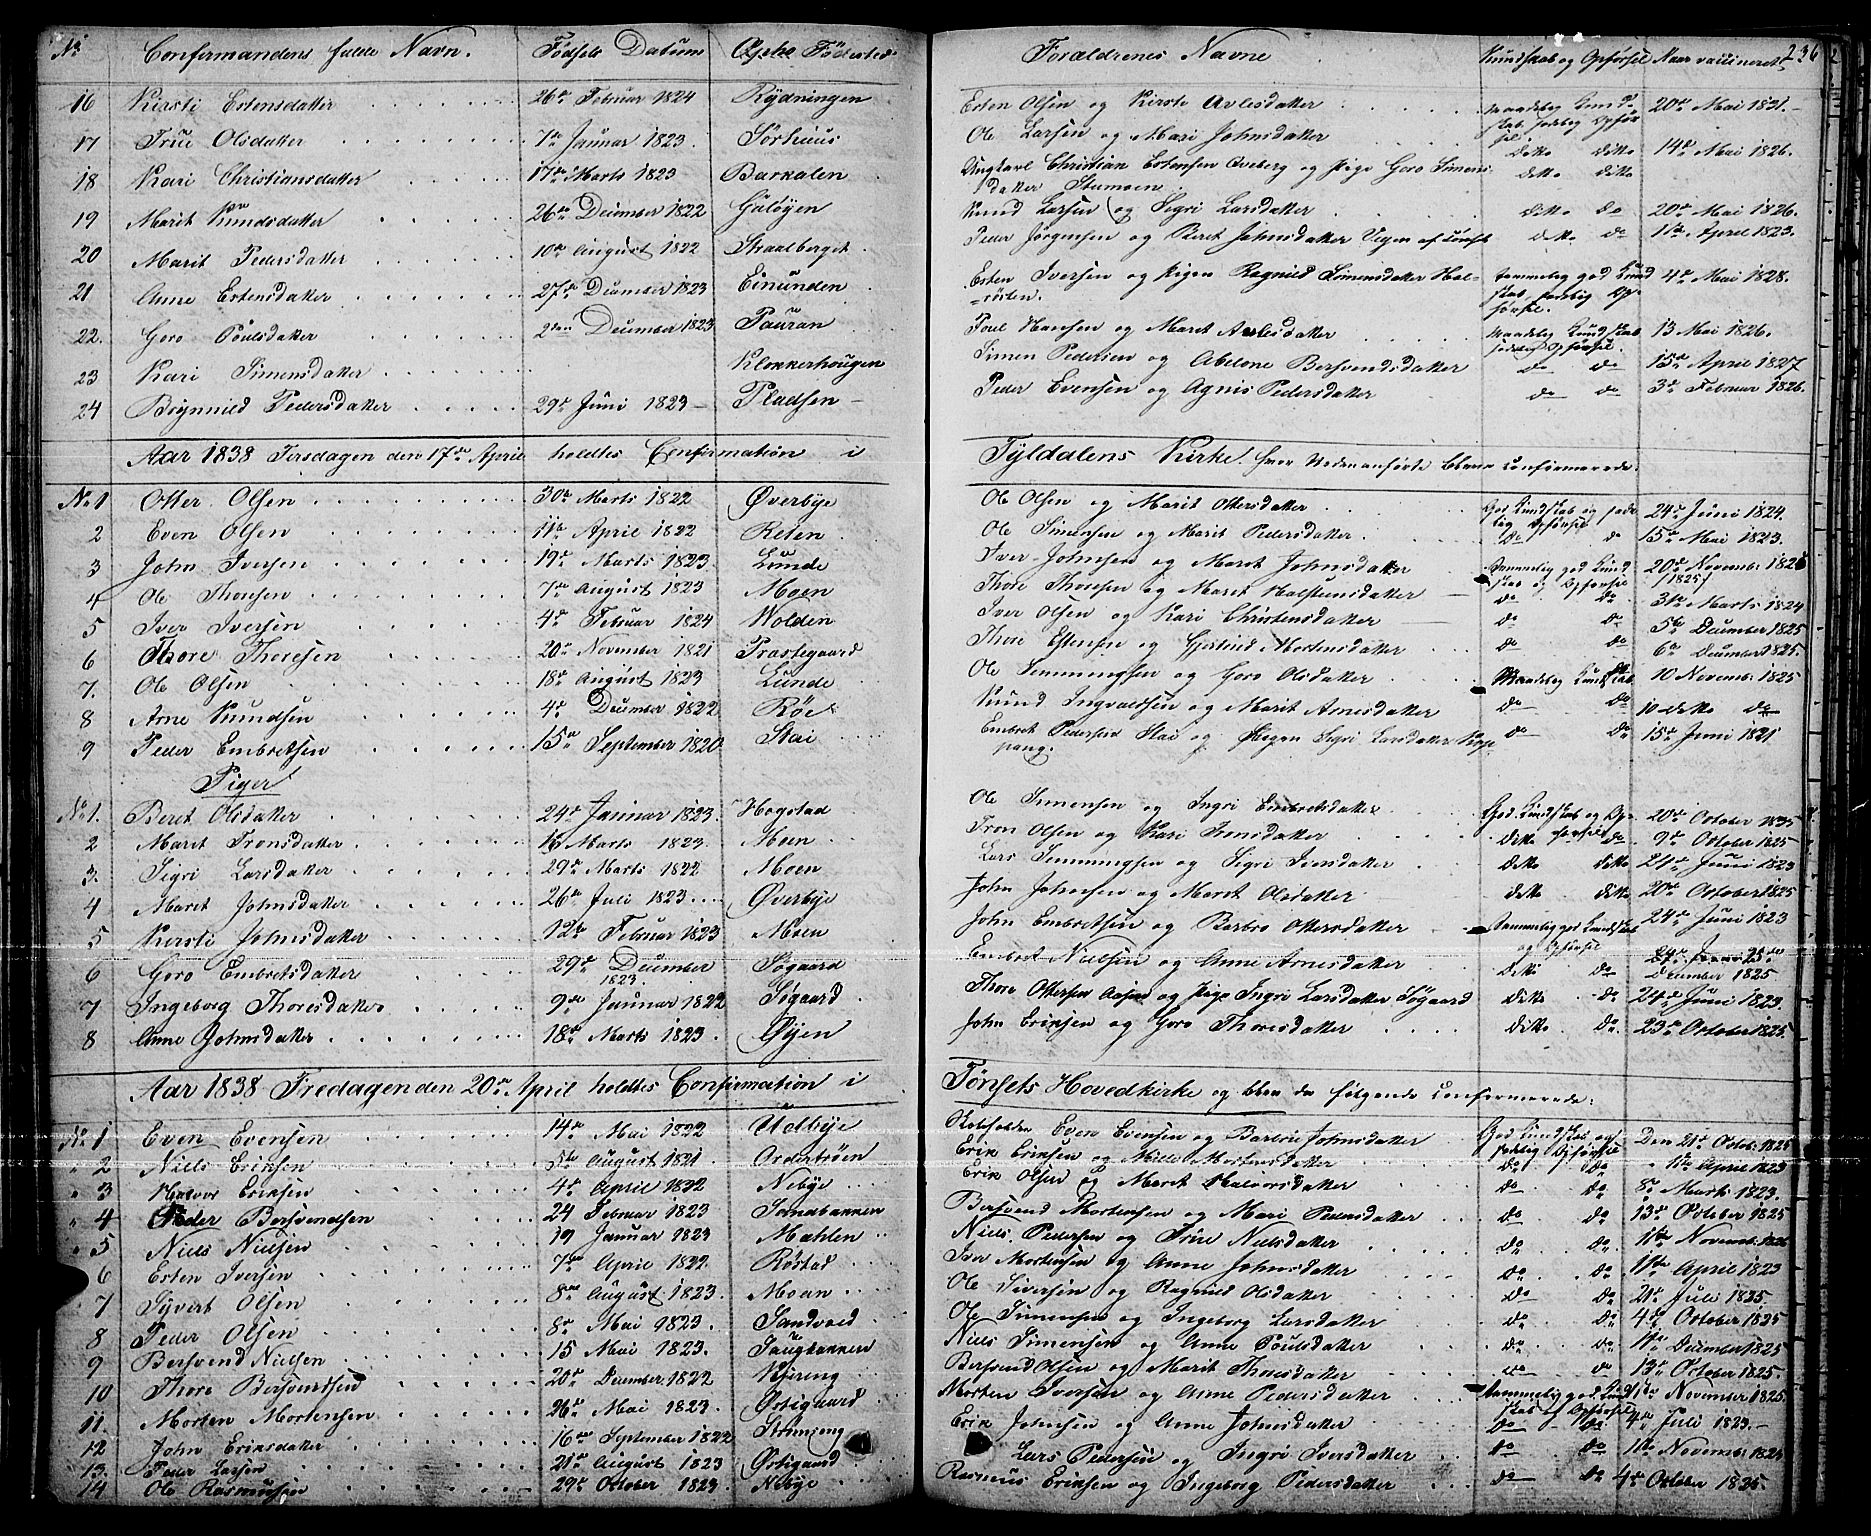 No Confirmandens fulde Navn. Fødsels Datum Fødested Forældrenes Navne Kundskab og Opførsel Naar vaccineret 236
16 Kirsti Estensdatter 26de Februar 1824 Rydningen Esten Olsen og Kirsti Avlesdatter maadelig Kundskab sædelig Opførsel 20de Mai 1831.
17 Olsdatter 7de Januar 1823 Sørhuus Ole Larsen og Mari Johnsdatter ditto ditto 14de Mai 1826.
18 Kari Christiansdatter 17de Marts 1823 Barkalen Ungkarl Christian Estensen og Pige Goro Simensdatter ditto ditto
19 Marit Knudsdatter 26de December 1822 Guløyen Knud Larsen og Sigri Larsdatter ditto do 20de Mai 1826.
20 Marit Pedersdatter 10de August 1822 Straalberget Peder Jørgensen og Beret Johnsdatter ditto do 11te April 1823.
21 Anne Estensdatter 27de December 1823 Einunden Esten Iversen og Pigen Ragnild Simensdatter temmelig god Kundskab sædelig Opførsel. 4de Mai 1828.
22. Goro Poulsdatter 2den December 1823 Pauran Poul Hansen og Marit Avlesdatter maadelig Kundskab sædelig Opførsel. 13 Mai 1826.
23 Kari Simensdatter Klokkerhougen Simen Pedersen og Abelone Bersvendsdatter do do 15de April 1827
24 Brynnild Pedersdatter 29de Juni 1823 Pladsen Peder Evensen og Agnis Pedersdatter do do 3de Februar 1826.
Aar 1838 Tirsdagen den 17de April holdtes Confirmation i Tyldalens Kirke hvor Nedenanførte bleve confirmerede:
No 1 Otter Olsen 30te Marts 1822 Øverbye Ole Olsen og Marit Ottersdatter God Kundskab og sædelig Opførsel 24de Juni 1824.
2 Even Olsen 11te April 1822 Reten Ole Simensen og Marit Pedersdatter do do 15de Mai 1823.
3 John Iversen 19de Marts 1823 Lunde Iver Johnsen og Maret Johnsdatter Temmelig god Kundskab og Opførsel 20de Novembr 1825
4 Ole Thoresen 7de August 1823 Moen Thore Thoresen og Maret Halstensdatter do do 31te Marts 1824
5 Iver Iversen 4de Februar 1824 Volden Iver Olsen og Kari Christensdatter do do 5te December 1825
6 Thore Thoresen 20de November 1821 Præstegaard Thore Estensen og Gjertrud Mortensdatter do do 6te December 1825.
7. Ole Olsen 18de August 1823 Lunde Ole Semmingsen og Goro Olsdatter Maadelig Kundskab 10 Novembr 1825
8 Arne Knudsen 4de December 1822 Røe Knud Ingvaldsen og Marit Arnesdatter do do 10 ditto do
9 Peder Embretsen 15de September 1820 Stai Embret Pedersen Stai og Pigen Sigri Larsdatter do do 15de Juni 1821
Piger
No 1. Beret Olsdatter 24de Januar 1823. Hogstad Ole Simensen og Ingri Embretsdatter God Kundskab og Opførsel 20de October 1835
2 Marit Tronsdatter 16 Marts 1823. Moen Tron Olsen og Kari Jensdatter ditto do 9de October 1825
3. Sigri Larsdatter 29de Marts 1822 Moen Lars Semmingsen og Sigri Jensdatter ditto ditto 21de Juni 1823
4 Maret Johnsdatter 26de Juli 1823 Øverbye John Johnsen og Maret Olsdatter ditto ditto 20de October 1825
5 Kersti Johnsdatter 12te Februar 1823 Moen John Embretsen og Barbro Ottersdatter Temmelig god Kundskab og Opførsel 24de Juni 1823
6 Goro Embretsdatter 29de December 1823. Søgaard Embret Nielsen og Anne Arnesdatter ditto do December 1825
7 Ingeborg Thoresdatter 9de Januar 1822 Søgaard Thore Ottersen Aasen og Pige Ingri Larsdatter Søgaard ditto do 24de Juni 1823.
8 Anne Johnsdatter 18de Marts 1823. Øyen John Eriksen og Goro Thoresdatter ditto do 23de October 1825.
Aar 1838 Fredagen den 20de April holdtes Confirmation i Tønsets Hovedkirke og bleve da følgende confirmerede:
No 1 Even Evensen 14de Mai 1822 Udbye Even Evensen og Barbro Johnsdatter God Kundskab og sædelig Opførsel Den 21de Octobr 1825
" 2 Niels Eriksen 5te August 1821 Erik Eriksen og Mille Mortensdatter do do 11te April 1823
" 3 Halvor Eriksen 4de April 1822 Nebye Erik Olsen og Maret Halvorsdatter do do 8de Marts 1823.
" 4 Peder Bersvendsen 24 Februar 1823 Bersvend Mortensen og Mari Pedersdatter do do 13de October 1825
" 5 Niels Nielsen 19 Januar 1823 Mæhlen Niels Pedersen og Nielsdatter do do 11te Novembr
6 Esten Iversen 7de April 1822. Røstad Iver Mortensen og Anne Johnsdatter do do 11te April 1823
7 Syvert Olsen 8de August 1823. Moen Ole Sivertsen og Ragnild Olsdatter do do 21de Juli 1835
8 Peder Olsen 8de Mai 1823. Sandvold Ole Simensen og Ingeborg Larsdatter do do 4de October 1835
9 Bersvend Nielsen 15 Mai 1823. Haugbakken Niels Simensen og Anne Poulsdatter do do 11te December 1825
10 Thore Bersvendsen 20de December 1822 Bersvend Olsen og Marit Thoresdatter do do 13de October 1825.
11. Morten Mortensen 26de Mai 1823. Østigaard Morten Iversen og Anne Pedersdatter Temmelig god Kundskab og Opførsel November 1825.
12 John Eriksdatter 16de September 1822 Strømeng Erik Johnsen og Anne Johnsdatter do do 4de Juli 1823.
13. Peder Larsen 21de August 1823 Østigaard Lars Pedersen og Ingri Iversdatter do do 11te Novembr 1824
14 Ole Rasmussen 29de October 1823. Nebye Rasmus Eriksen og Ingeborg Pedersdatter do do 4de October 1825.